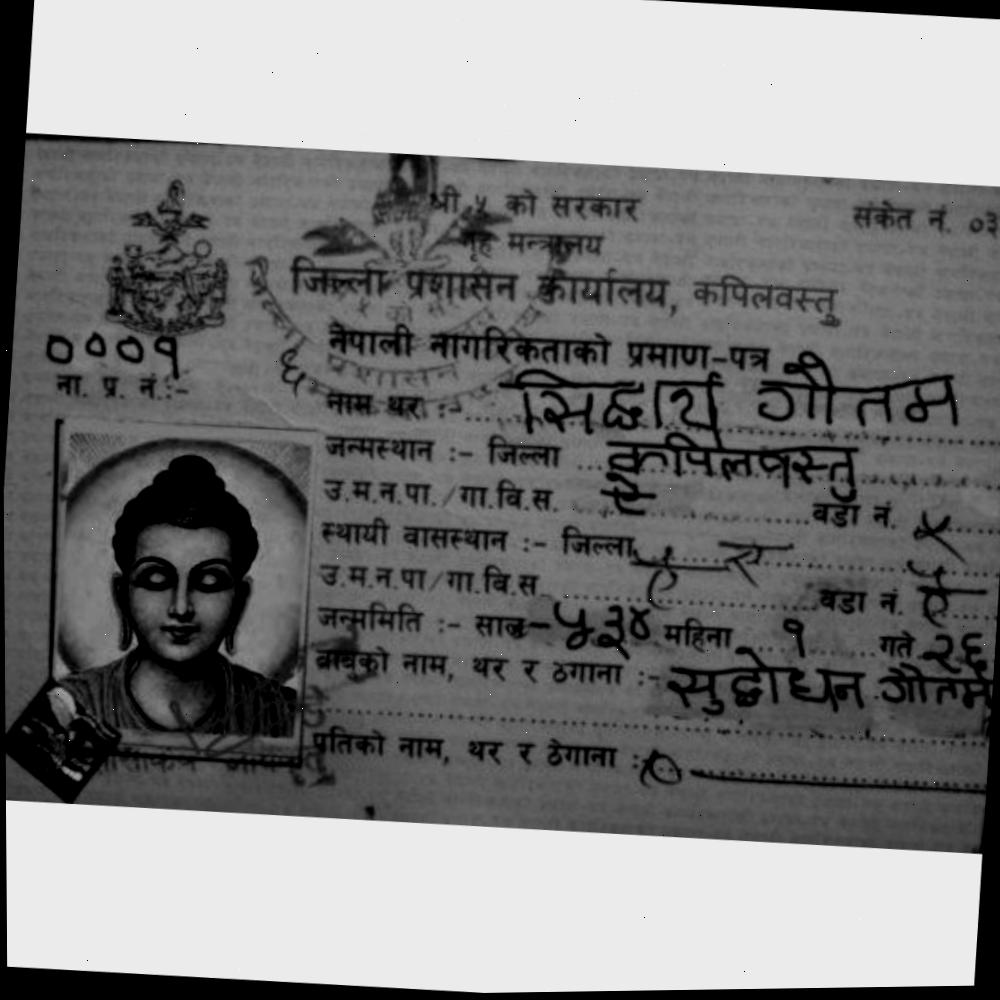 श्री ५ को सरकार
संकेत नं. ०३
गृह मन्त्रालय
जिल्ला प्रशासन कार्यालय, कपिलवस्तु
नेपाली नागरिकताको प्रमाण-पत्र
०००१
ना. प्र. नं.:-
नाम थर :- सिद्धार्थ गौतम
जन्मस्थान :- जिल्ला कपिलवस्तु
उ.म.न.पा./गा.वि.स. ऐ वडा नं. ५
स्थायी वासस्थान :- जिल्ला
उ.म.न.पा/गा.वि.स वडा नं. ऐ
जन्ममिति :- साल-५३४ महिना १ गते २६
बाबुको नाम, थर र ठेगाना :- सुद्धोधन गौतम
पतिको नाम, थर र ठेगाना :